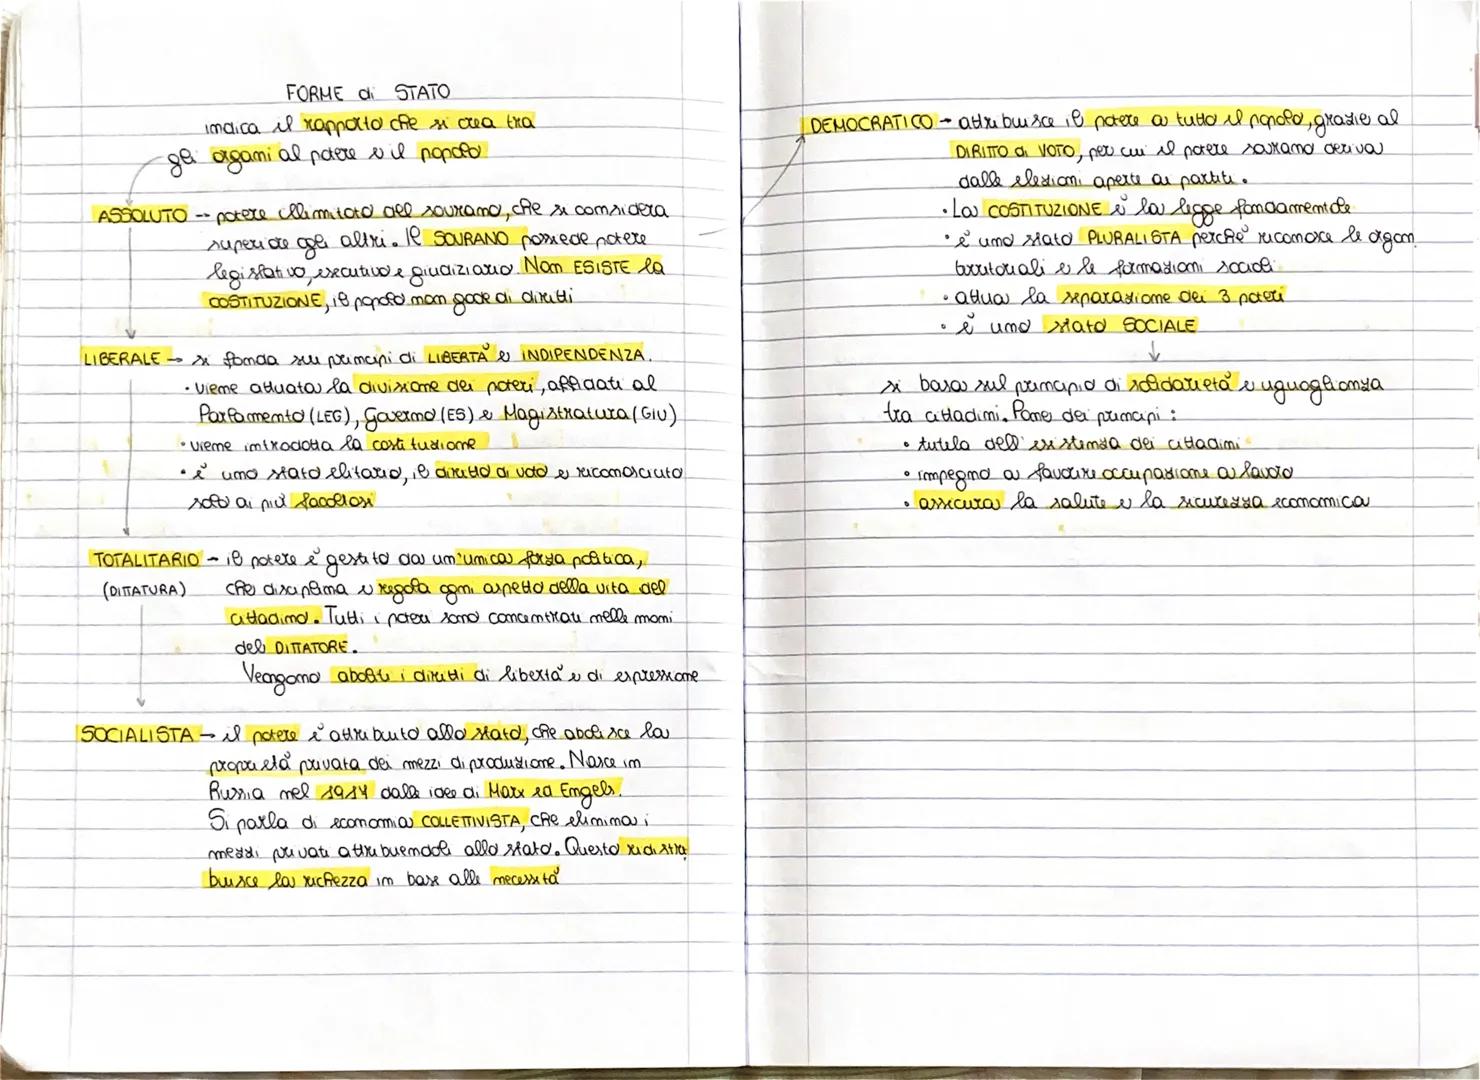 FORME di STATO
indica il rapporto che si crea tra
gli organi al potere e il popolo
ASSOLUTO → potere illimitato del sovrano, che si considera
superiore agli altri. Il SOVRANO possiede potere
legislativo, esecutivo e giudiziario. Non ESISTE la
COSTITUZIONE, il popolo non gode di diritti
LIBERALE → si fonda sui principi di LIBERTÀ e INDIPENDENZA.
• viene attuata la divisione dei poteri, affidati al
Parlamento (LEG), Governo (ES) e Magistratura (GIU)
• viene introdotta la costituzione
• è uno stato elitario, il diritto di voto è riconosciuto
solo ai più facoltosi
TOTALITARIO → il potere è gestito da un'unica forza politica,
(DITTATURA) che disciplina e regola ogni aspetto della vita del
cittadino. Tutti i poteri sono concentrati nelle mani
del DITTATORE.
Vengono aboliti i diritti di libertà e di espressione
SOCIALISTA → il potere è attribuito allo stato, che abolisce la
proprietà privata dei mezzi di produzione. Nasce in
Russia nel 1917 dalle idee di Marx ed Engels.
Si parla di economia COLLETTIVISTA, che elimina i
mezzi privati attribuendoli allo stato. Questo ridistri
buisce la ricchezza in base alle necessità
DEMOCRATICO → attribuisce il potere a tutto il popolo, grazie al
DIRITTO di VOTO, per cui il potere sovrano deriva
dalle elezioni aperte ai partiti.
• La COSTITUZIONE è la legge fondamentale
• è uno stato PLURALISTA perché riconosce le organi
territoriali e le formazioni sociali
• attua la separazione dei 3 poteri
• è uno stato SOCIALE
si basa sul principio di solidarietà e uguaglianza
tra cittadini. Pone dei principi :
• tutela dell'esistenza dei cittadini
• impegno a favorire occupazione a lavoro
• assicura la salute e la sicurezza economica